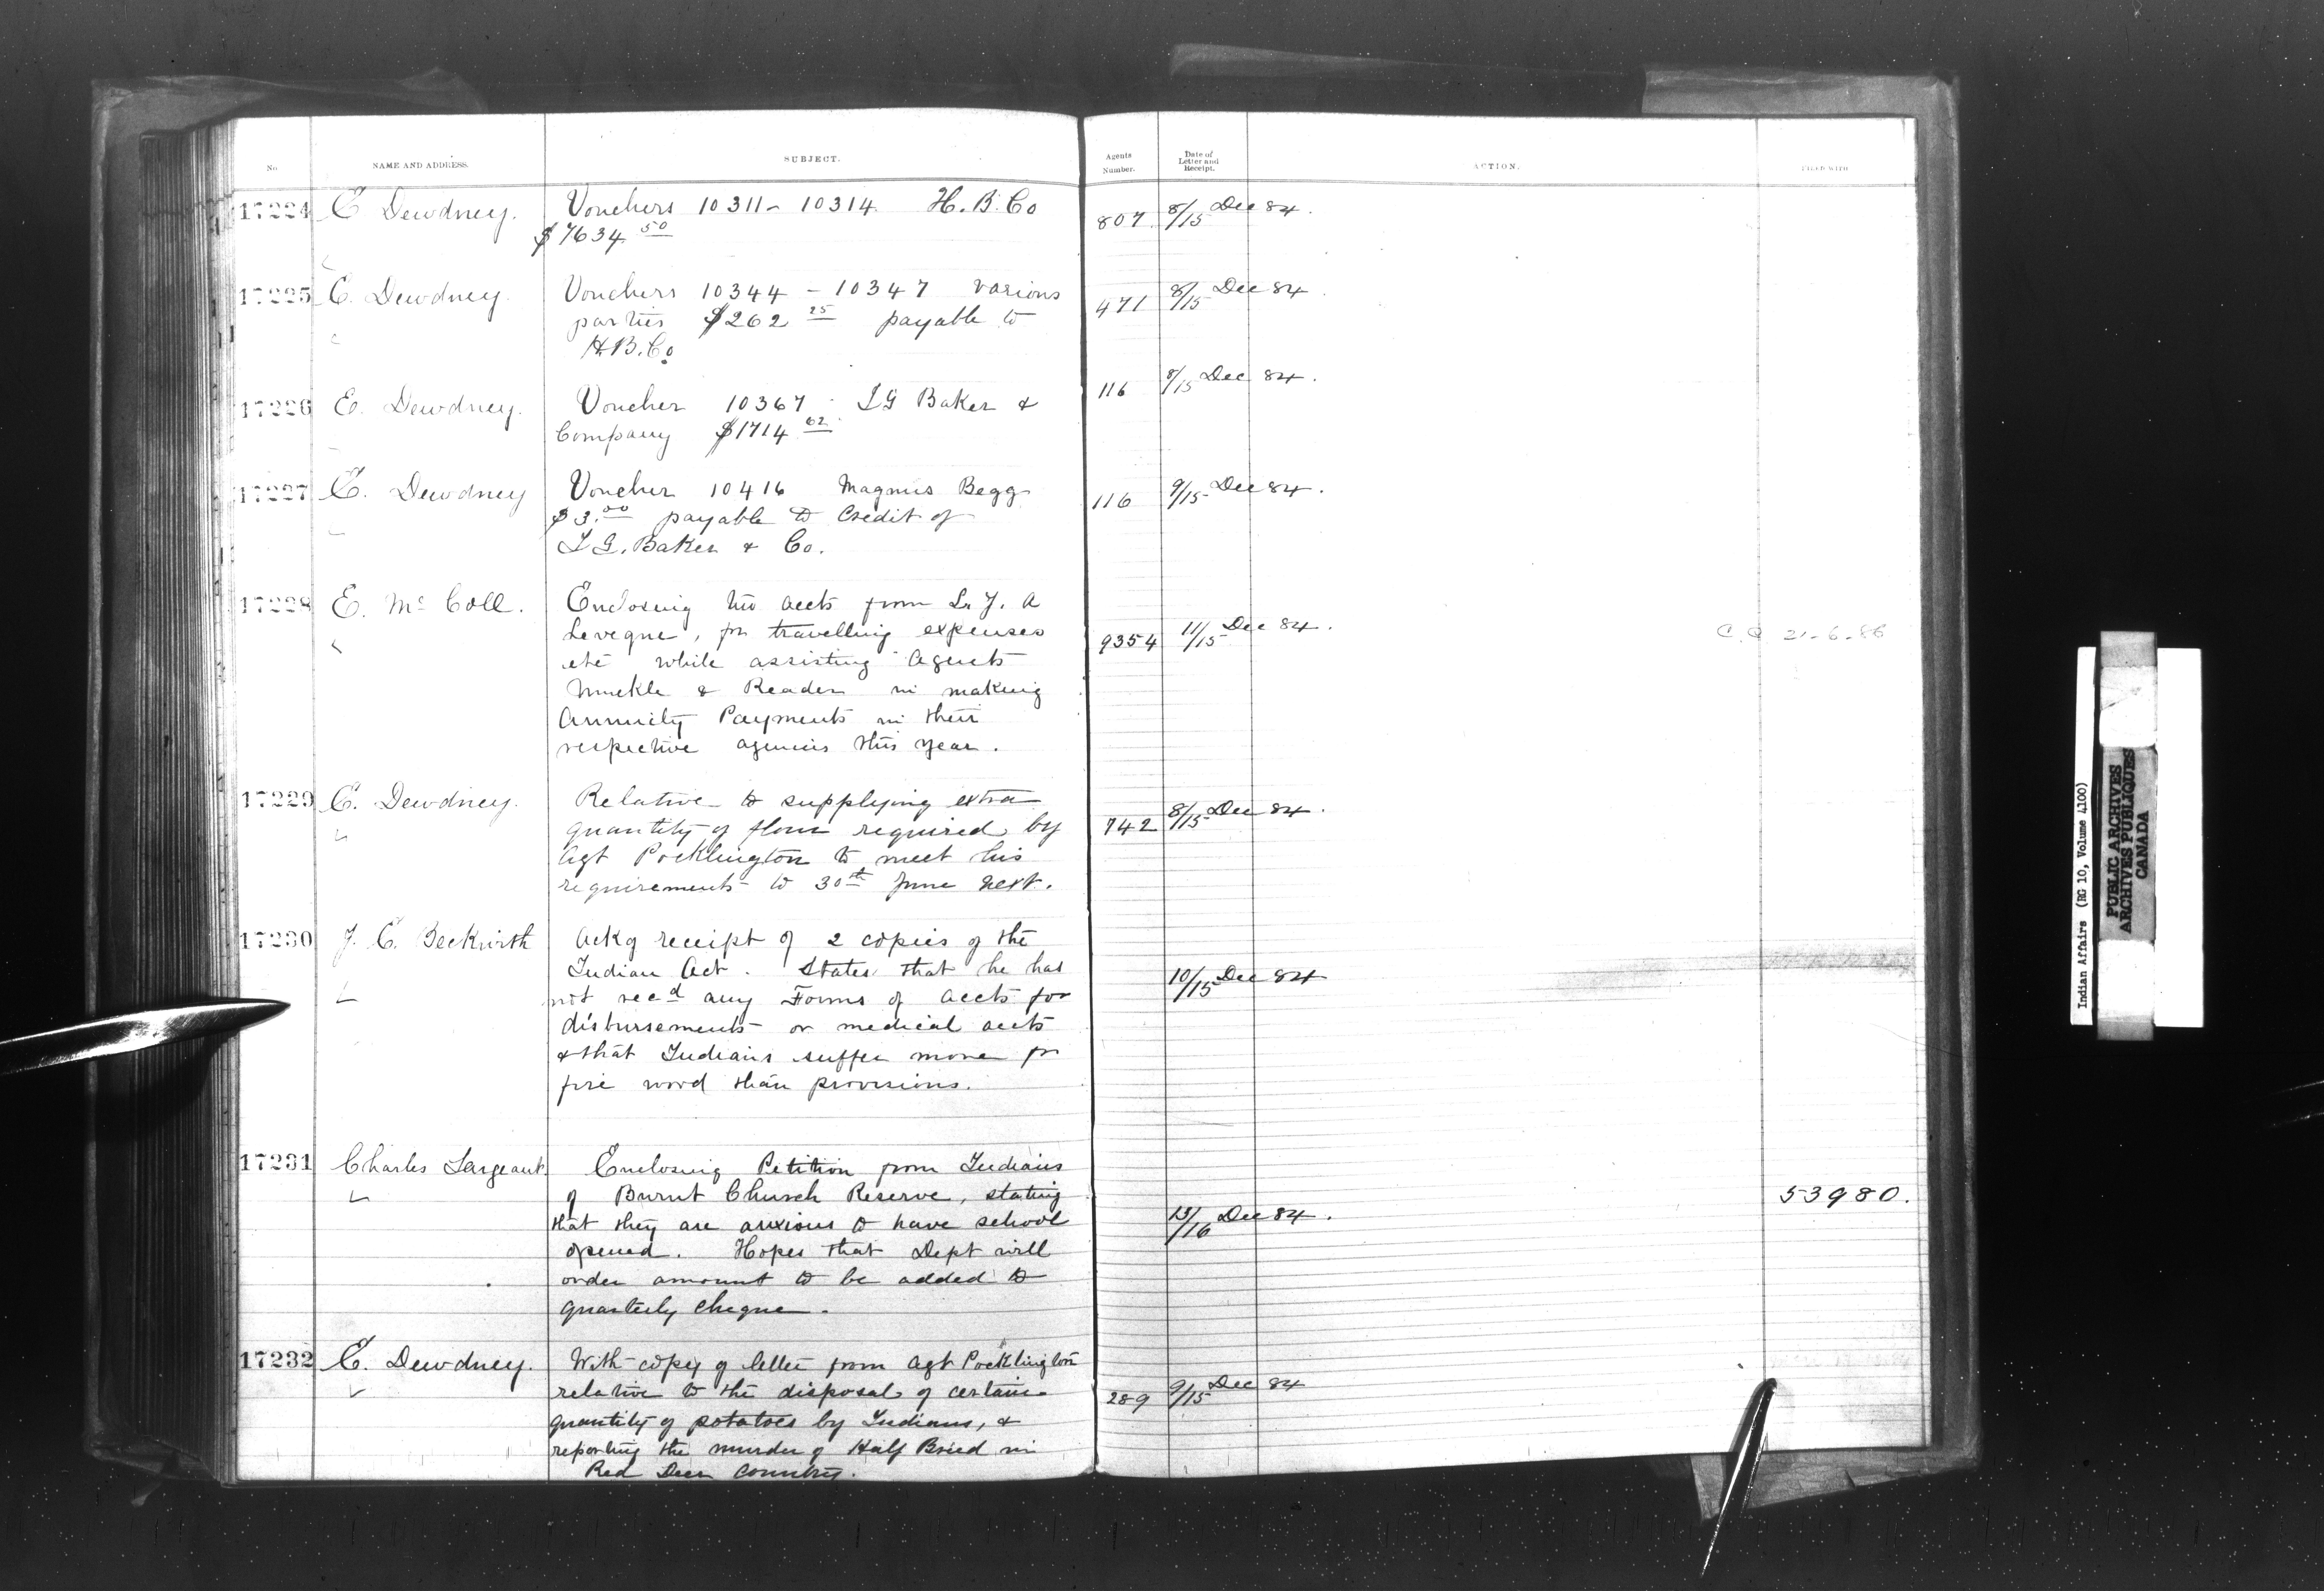 No
NAME AND ADDRESS.
SUBJECT.
Agents Number.
Date of Letter and Receipt.
ACTION.
FILED WITH
17224 E Dewdney. Vouchers 10311 - 10314 H. B. Co 807 8/15 Dec 84.
$7634 50
17225 E. Dewdney. Vouchers 10344 - 10347 various 471 8/15 Dec 84
parties $262 25 payable to
H.B. Co
17226 E. Dewdney. Voucher 10367 I G Baker & 116 8/15 Dec 84.
Company $1714 62
17227 E. Dewdney Voucher 10416 Magnus Begg 116 9/15 Dec 84.
$3.00 payable to Credit of
I G. Baker & Co.
17228 E. Mc Coll. Enclosing two accts from L. J. A
Leveque, for travelling expenses 9354 11/15 Dec 84. 21-6-86
etc while assisting Agents
Muckle & Reader in making
Annuity Payments in their
respective agencies this year.
17229 E. Dewdney. Relative to supplying extra 742 8/15 Dec 84.
quantity of flour required by
Agt Pocklington to meet his
requirements to 30th June next.
17230 J. C. Beckwith Ackg receipt of 2 copies of the
Indian Act. States that he has 10/15 Dec 84
not recd any Forms of accts for
disbursements or medical accts
& that Indians suffer more for
fire wood than provisions.
17231 Charles Sargeant Enclosing Petition from Indians
of Burnt Church Reserve, stating 53980.
that they are anxious to have school 13/16 Dec 84.
opened. Hopes that Dept will
order amount to be added to
quarterly cheque.
17232 E. Dewdney. With copy of letter from Agt Pocklington
relative to the disposal of certain 289 9/15 Dec 84
quantity of potatoes by Indians, &
reporting the murder of Half Breed in
Red Deer Country.
Indian Affairs (RG 10, Volume 4100)
PUBLIC ARCHIVES
ARCHIVES PUBLIQUES
CANADA